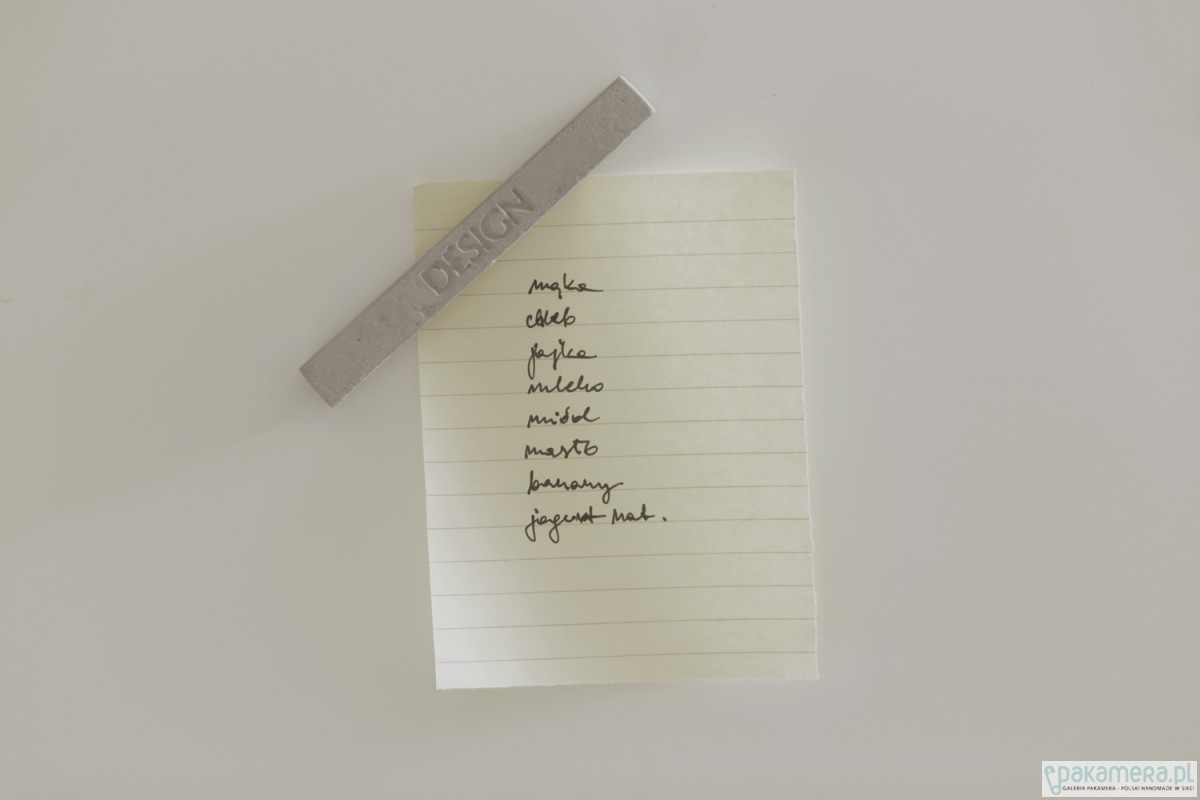 DESIGN
mąka
chleb
jajka
mleko
miód
masło
banany
jogurt nat.
pakamera.pl
GALERIA PAKAMERA - POLSKI HANDMADE W SIECI